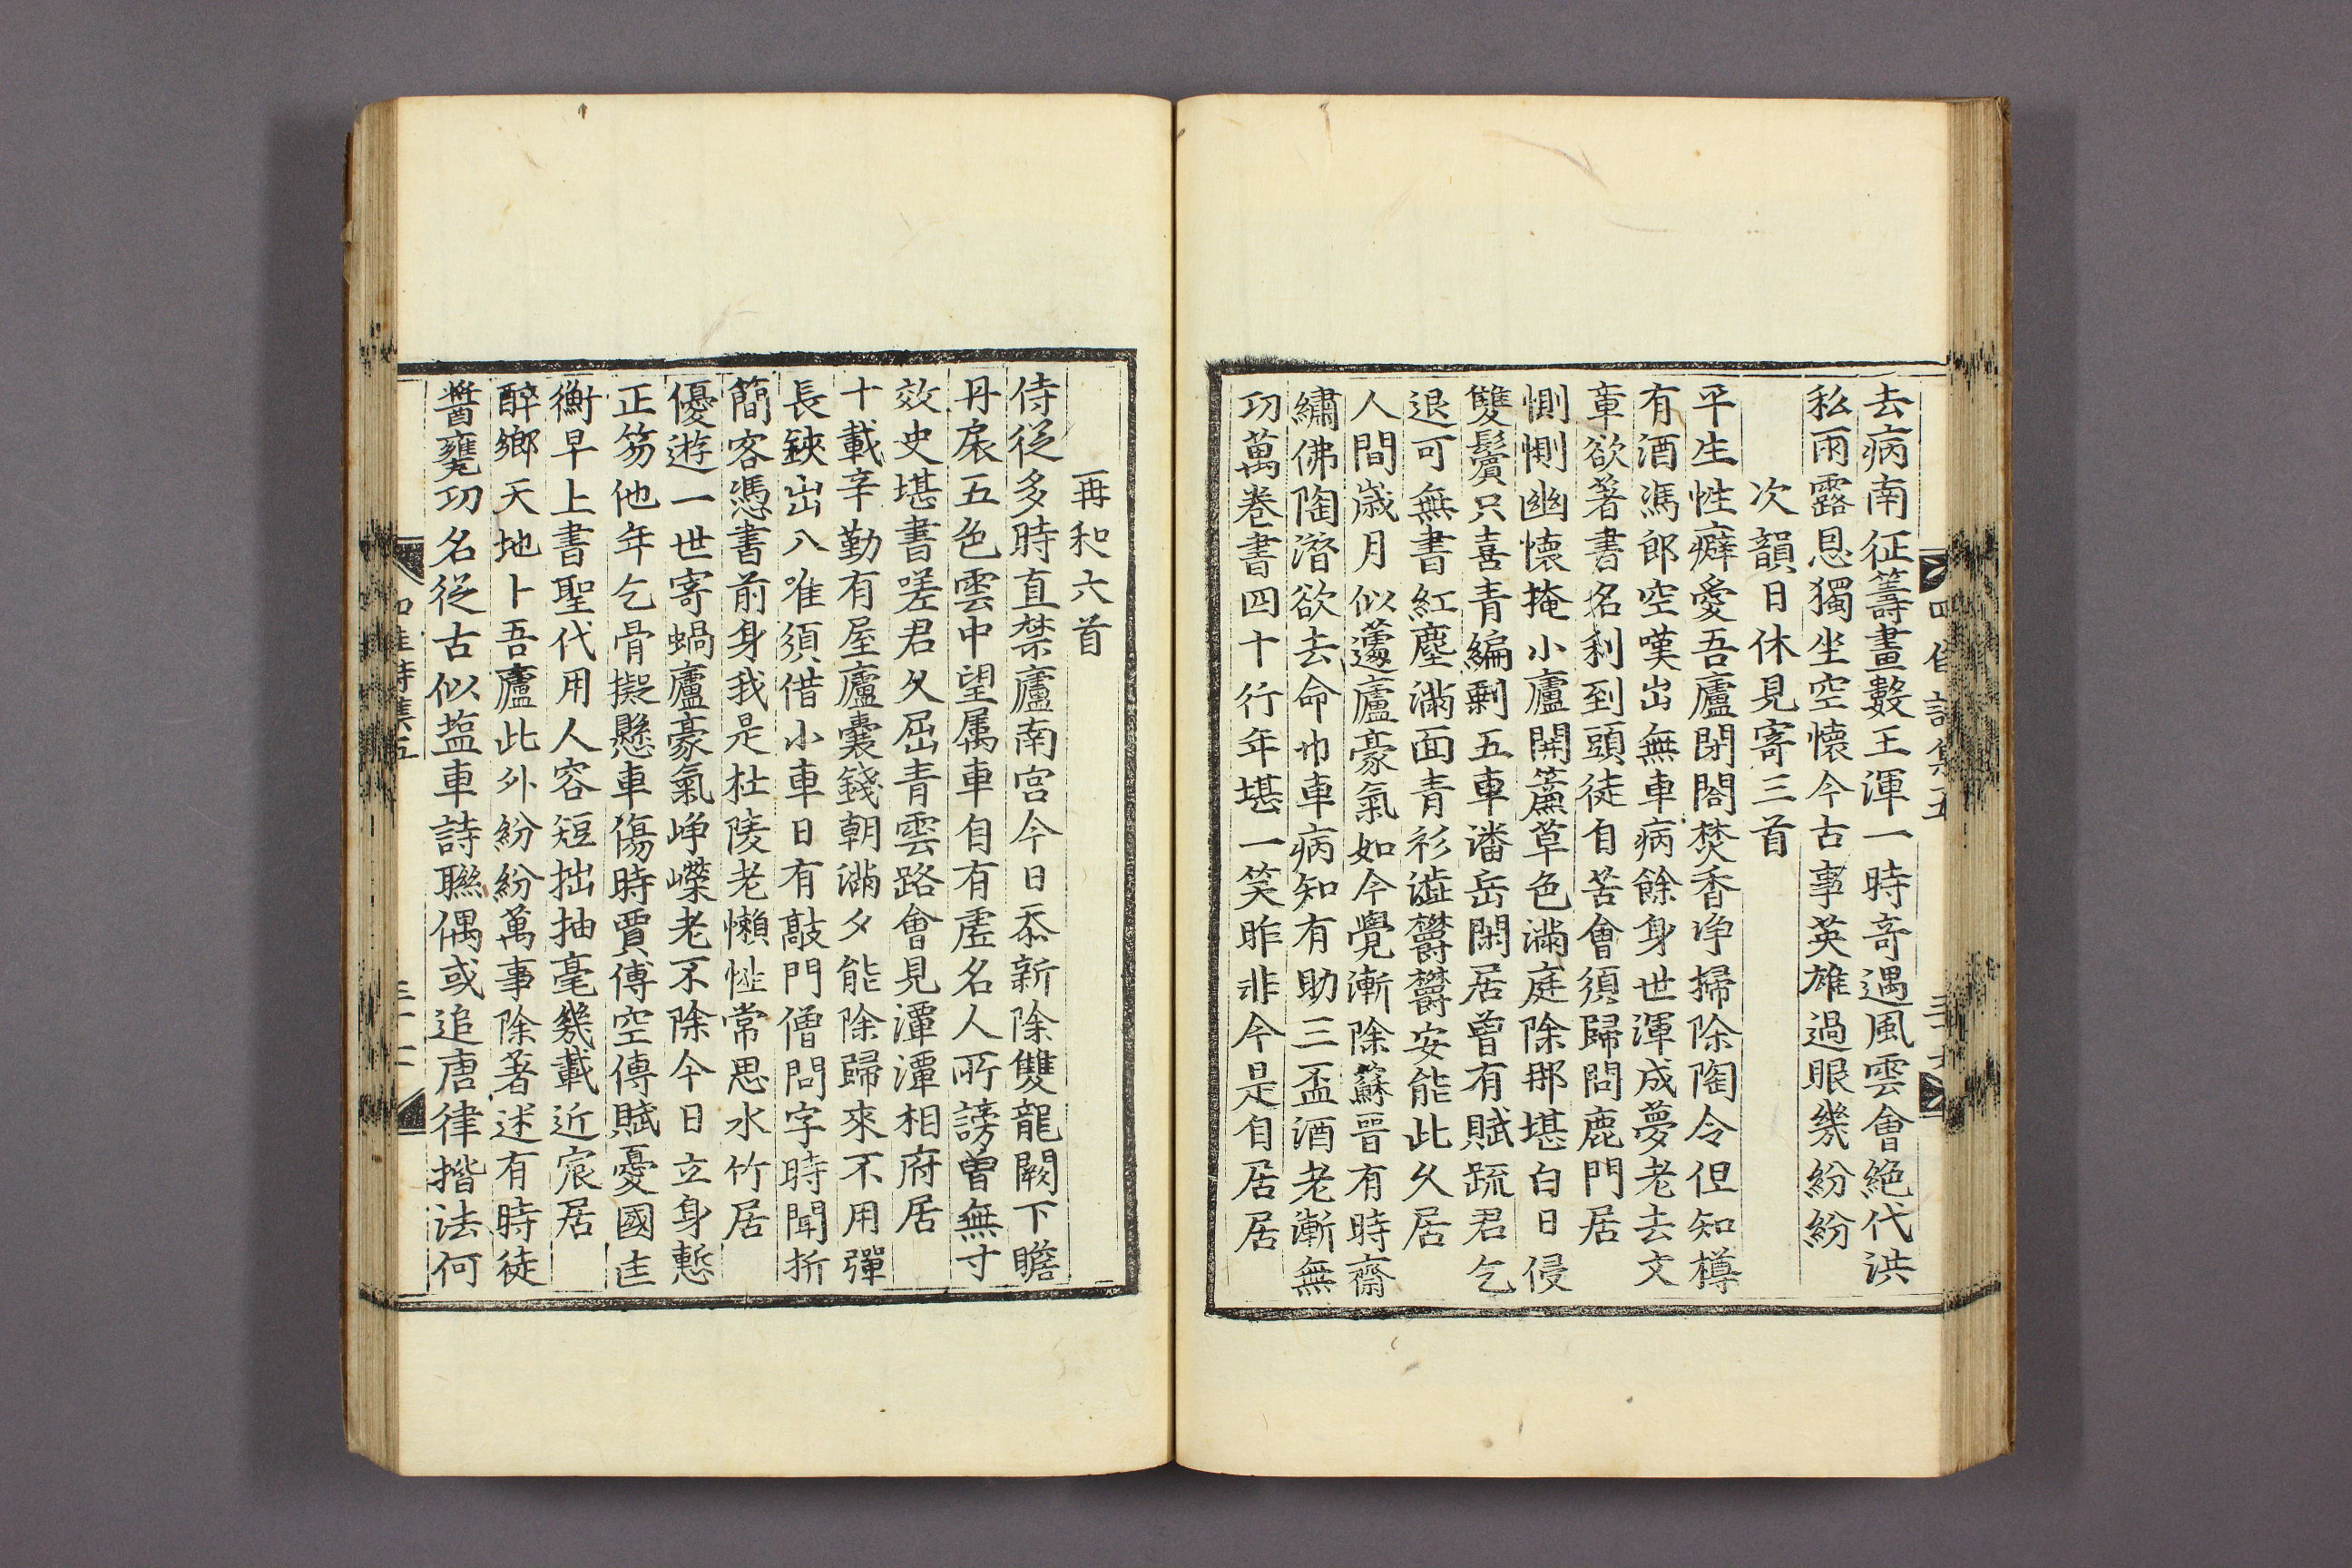 去病南征籌畫數王渾一時奇遇風雲會絶代洪
私雨露恩獨坐空懷今古事英雄過眼幾紛紛
次韻日休見寄三首
平生性癖愛吾廬閉閤焚香净掃除陶令但知樽
有酒馮郎空嘆出無車病餘身世渾成夢老去文
章欲著書名利到頭徒自苦會須歸問鹿門居
惻惻幽懷掩小廬開簾草色滿庭除那堪白日侵
雙鬢只喜青編剩五車潘岳閑居曾有賦疏君乞
退可無書紅塵滿面青衫澁欝欝安能此久居
人間歲月似蘧廬豪氣如今覺漸除蘇晉有時齋
繡佛陶潛欲去命巾車病知有助三盃酒老漸無
功萬卷書四十行年堪一笑昨非今是自居居
再和六首
侍從多時直禁廬南宮今日忝新除雙龍闕下瞻
丹扆五色雲中望属車自有虛名人所謗曾無寸
效史堪書嗟君久屈青雲路會見潭潭相府居
十載辛勤有屋廬囊錢朝滿夕能除歸來不用彈
長鋏出入唯須借小車日有敲門僧問字時聞折
簡客憑書前身我是杜陵老懶性常思水竹居
優遊一世寄蝸廬豪氣峥嶸老不除今日立身慙
正笏他年乞骨擬懸車傷時賈傅空傳賦憂國匡
衡早上書聖代用人容短拙抽毫幾載近宸居
醉鄉天地卜吾廬此外紛紛萬事除著述有時徒
醬甕功名從古似塩車詩聯偶或追唐律揩法何